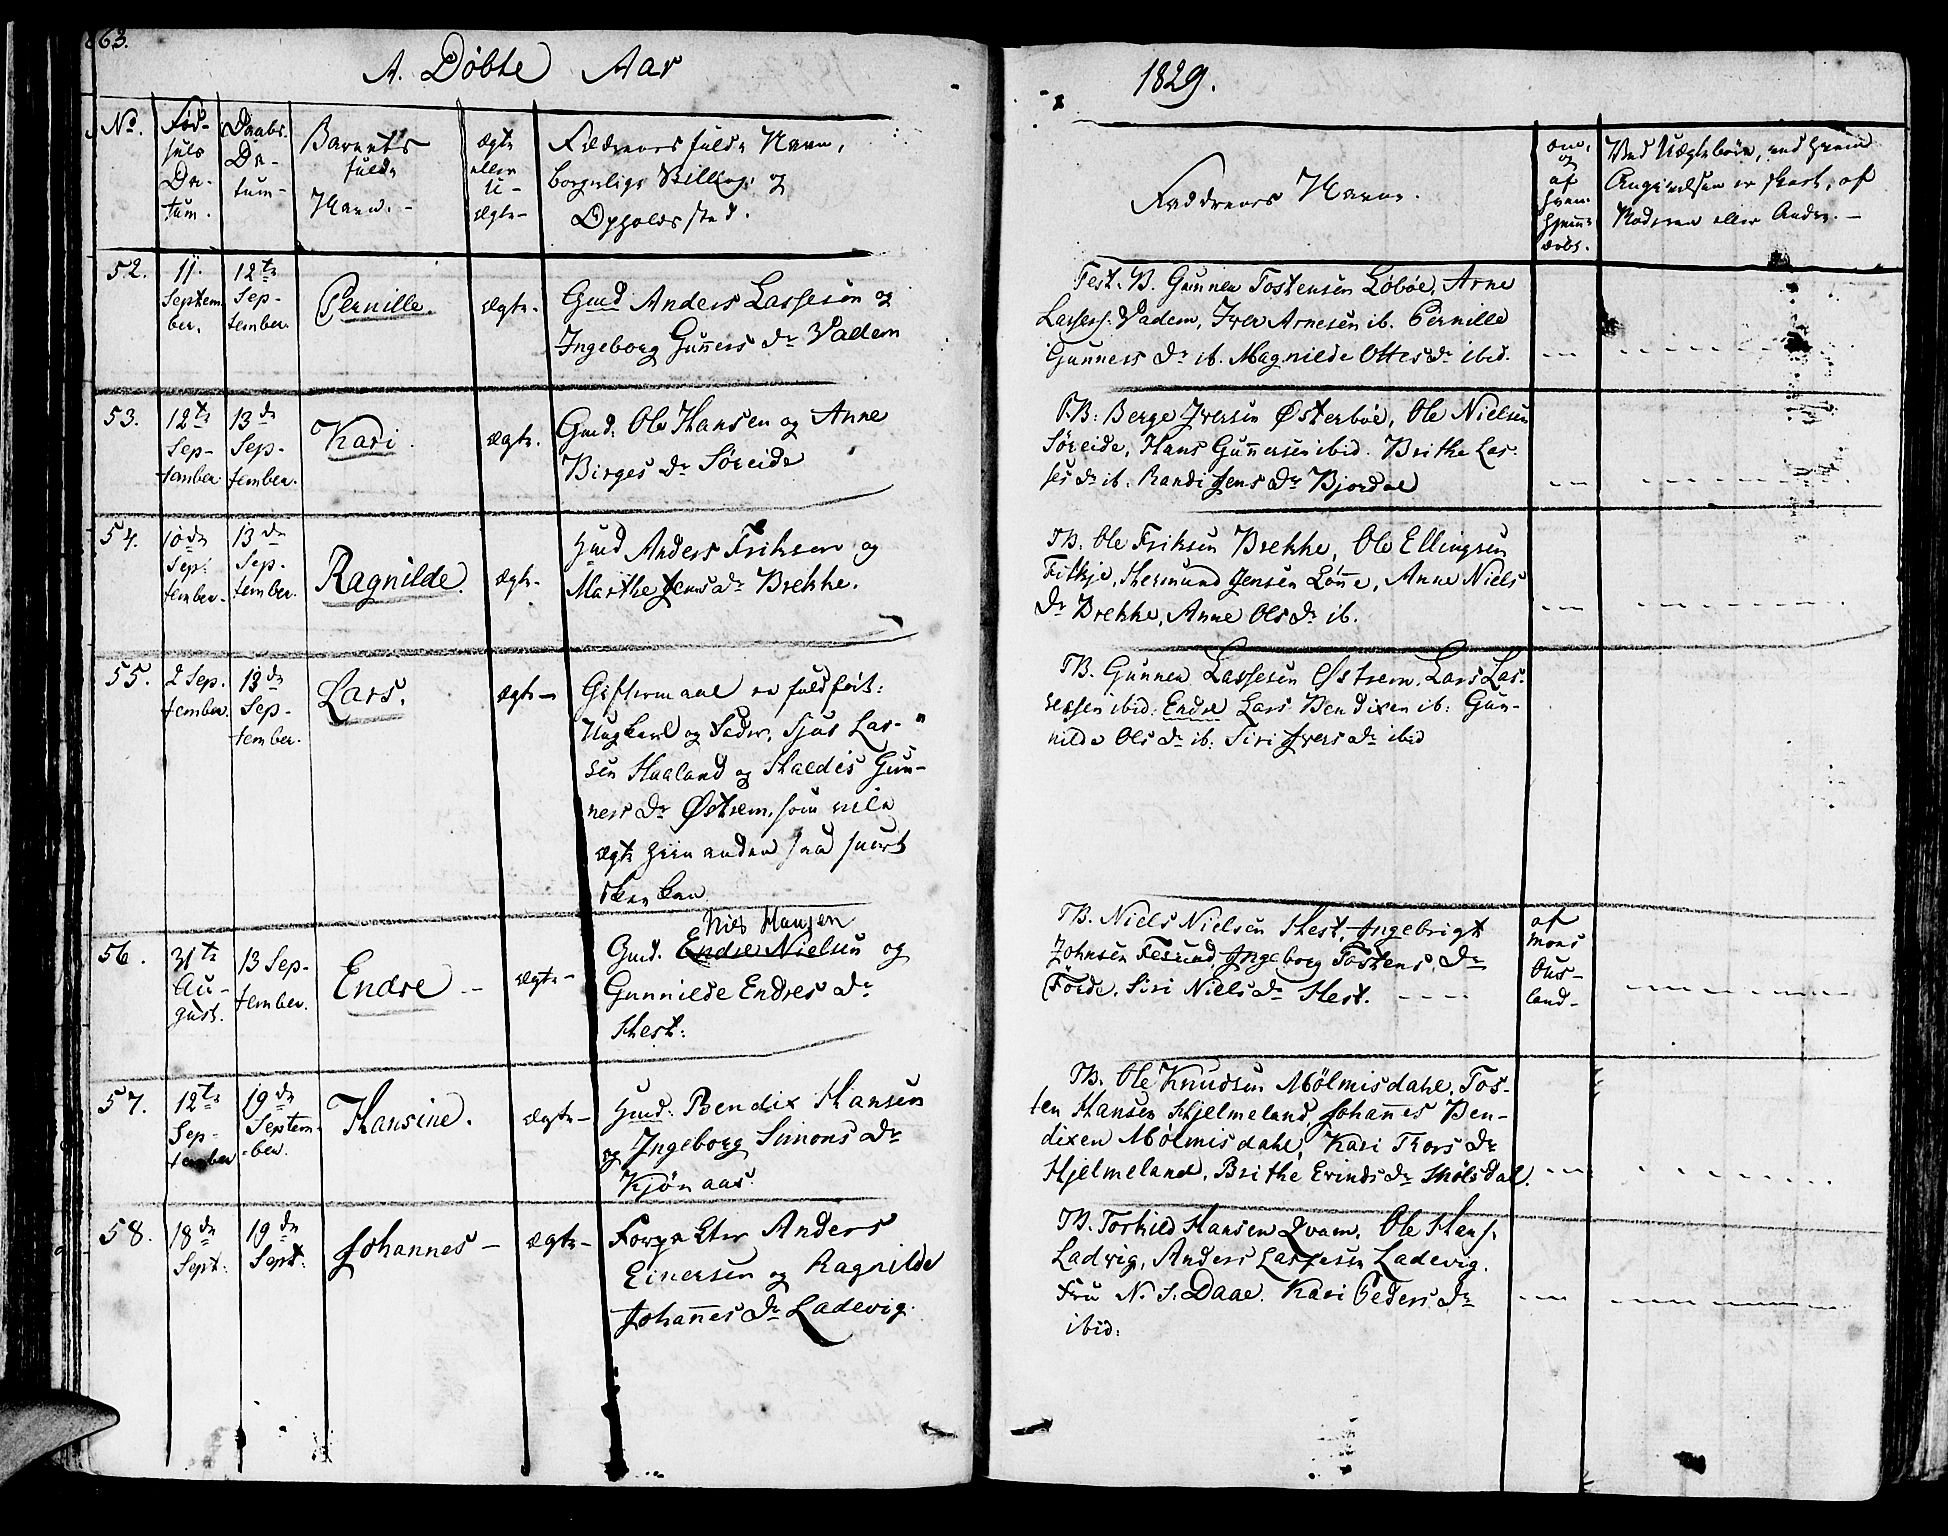 63.
A. Døbte Aar
1829.
No.
Fød-
sels
Da-
tum.
Daabs
Da-
tum-
Barnets
fulde
Navn.-
ægte
eller
U-
ægte-
Forældrenes fulde Navn,
borgerlige Stilling og
Opholdssted.
Faddernes Navne.
om,
og
af
hvem
hjemme
døbt.
Ved Uægtebørn, ved hvem
Angivelsen er skeet, af
Moderen eller Andre.-
52.
11.
Septem-
ber.
12te
Sep-
tember.
Pernille.
ægte.
Gmd Anders Lassesøn og
Ingeborg Guñers Dr Vadem
Test. B. Gunner Tostensen Løbøe, Arne
Lasses. Vadem, Iver Arnesen ib. Pernille
Gunners Dr ib. Magnilde Ottes Dr ibid.
53.
12te
Sep-
tember
13de
Sep-
tember.
Kari.
ægte.
Gmd. Ole Hansen og Anne
Birges Dr Søreide
T.B: Berge Iversen Østerbøe, Ole Nielsen
Søreide, Hans Guñersen ibid. Brithe Las-
ses Dr ib. Randi Jens Dr Bjordal
54.
10de
Sep-
tember.
13de
Sep-
tember.
Ragnilde.
ægte-
Hmd Anders Eriksen og
Marthe Jens Dr Brekke.
TB. Ole Eriksen Brekke, Ole Ellingsen
Fitkje, Shermund Jensen Løñe, Anne Niels
Dr Brekke, Anne Ols Dr ib.
55.
2 Sep-
tember.
13de
Sep-
tember.
Lars.
ægte-
Giftermaal er fuldført:
Ungkarl og Fader, Sjus Las-
sen Hualand og Haldis Gun-
ners Dr Østrem, som ville
ægte hinanden saa snart
TB. Gunner Lassesen Østrem, Lars Las-
sessen ibid: Endre Lars Bendixen ib: Gun-
nilde Ols Dr ib: Siri Ivers Dr ibid
56.
31te
Au-
gust.
13 Sep-
tember.
Endre -
ægte-
Niels Hansen
Gmd. Endre Nielsen og
Gunnilde Endres Dr
Hest:
TB. Niels Nielsen Hest, Ingebrigt
Johnsen Tesund, Ingeborg Tostens Dr
Førde, Siri Niels Dr Hest.
af
Mons
Ous-
land-
57.
12te
Sep-
tember
19de
Septem-
-ber.
Hansine.
ægte-
Hmd. Bendix Hansen
og Ingeborg Simons Dr
Kjønaas.
TB. Ole Knudsen Mølmisdahl, Tos-
ten Hansen Hjelmeland, Johañes Ben-
dixen Mølmisdahl, Kari Thors Dr
Hjelmeland, Brithe Erinds Dr Mølsdal.
58.
18de
Sept:
19de
Sept:
Johannes-
ægte-
Forpakter Anders
Einersen og Ragnilde
Johañes Dr Ladevig.
TB. Torkild Hansen Qvam, Ole Hans.
Ladvig, Anders Lassesen Ladevig.
Fru N. S. Daae. Kari Peders Dr
ibid: